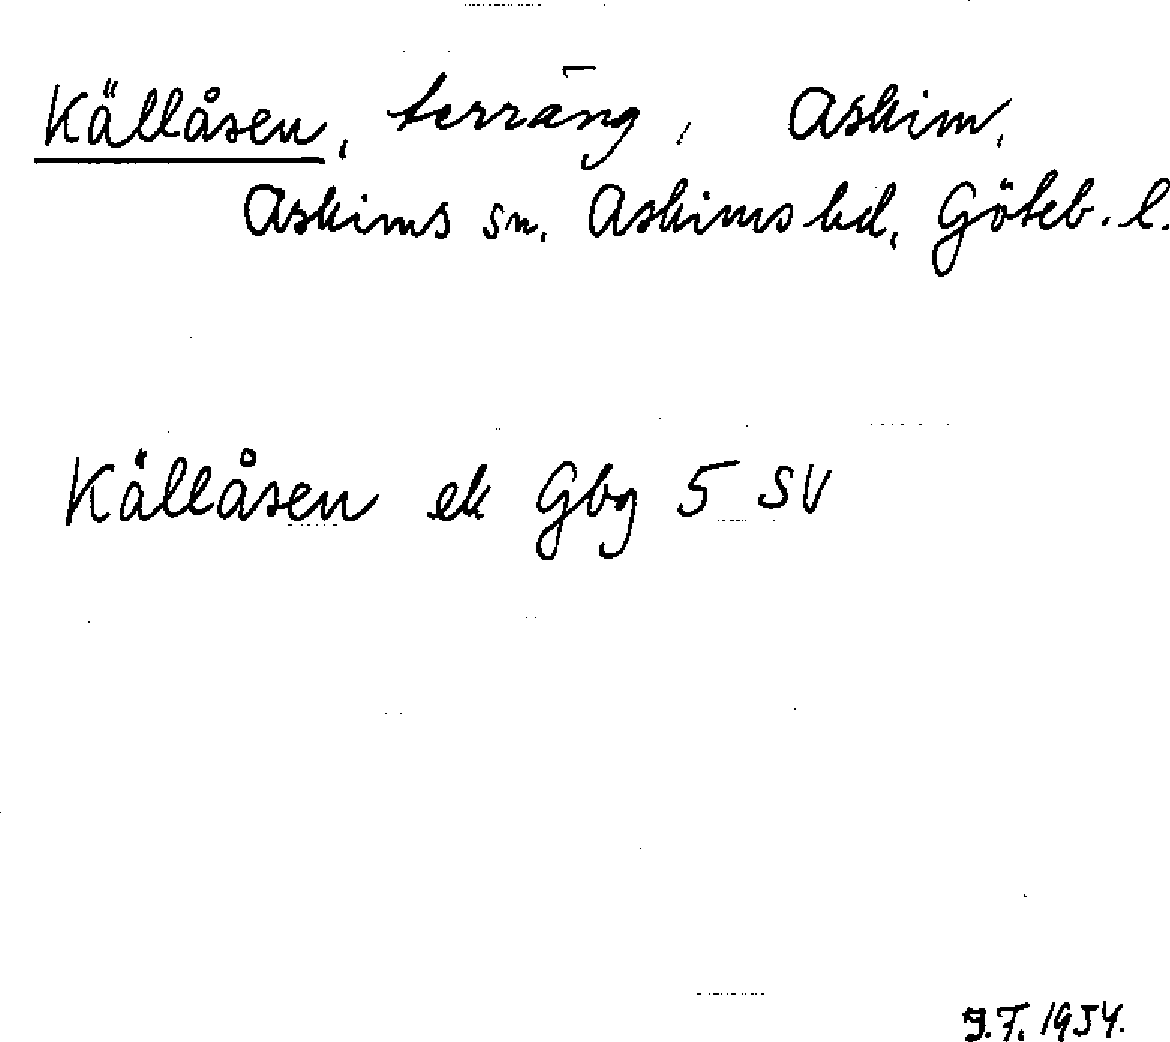 Källåsen, terräng, Askim,
Askims sn. Askims hd, Göteb. l.
Källåsen ek Gbg 5 SV
J.T. 1954.